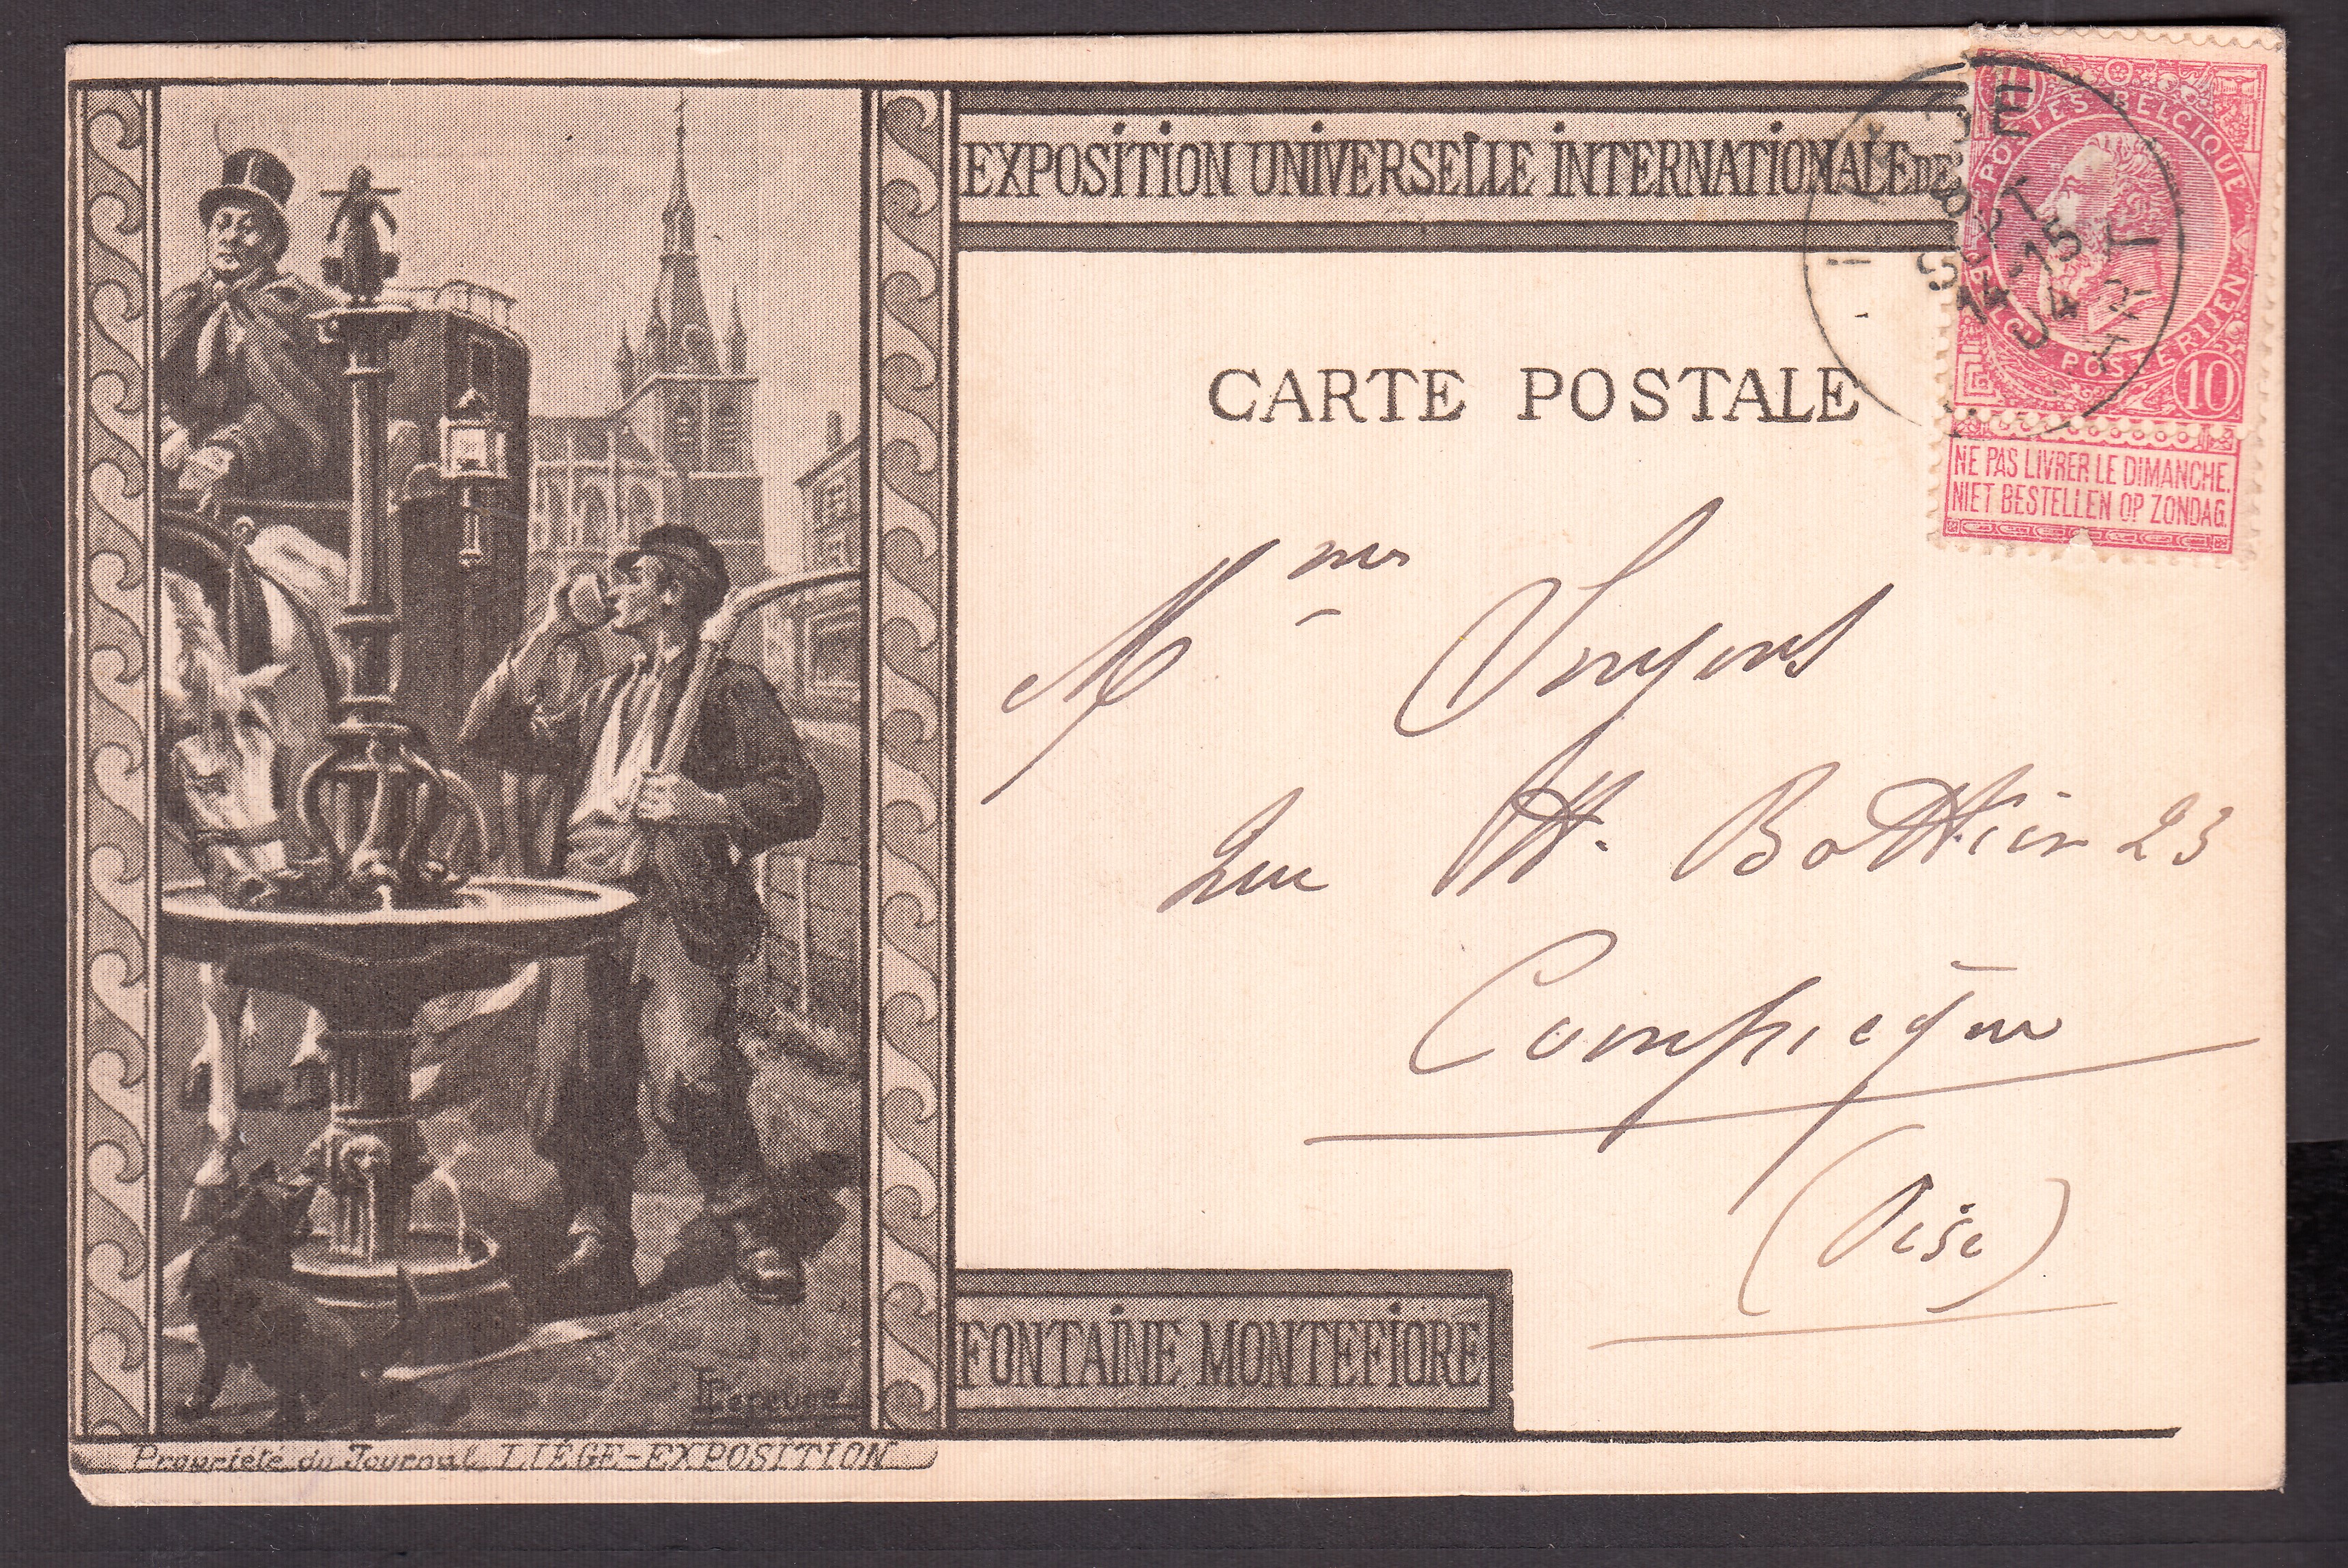 EXPOSITION UNIVERSELLE INTERNATIONALE DE
POSTES BELGIQUE
POSTERIJEN
10
SEPT
14-15
04
NE PAS LIVRER LE DIMANCHE.
NIET BESTELLEN OP ZONDAG.
CARTE POSTALE
Mme
Rue St. Bottier 23
Compiègne
(Oise)
FONTAINE MONTEFIORE
Propriété du Journal LIÉGE-EXPOSITION